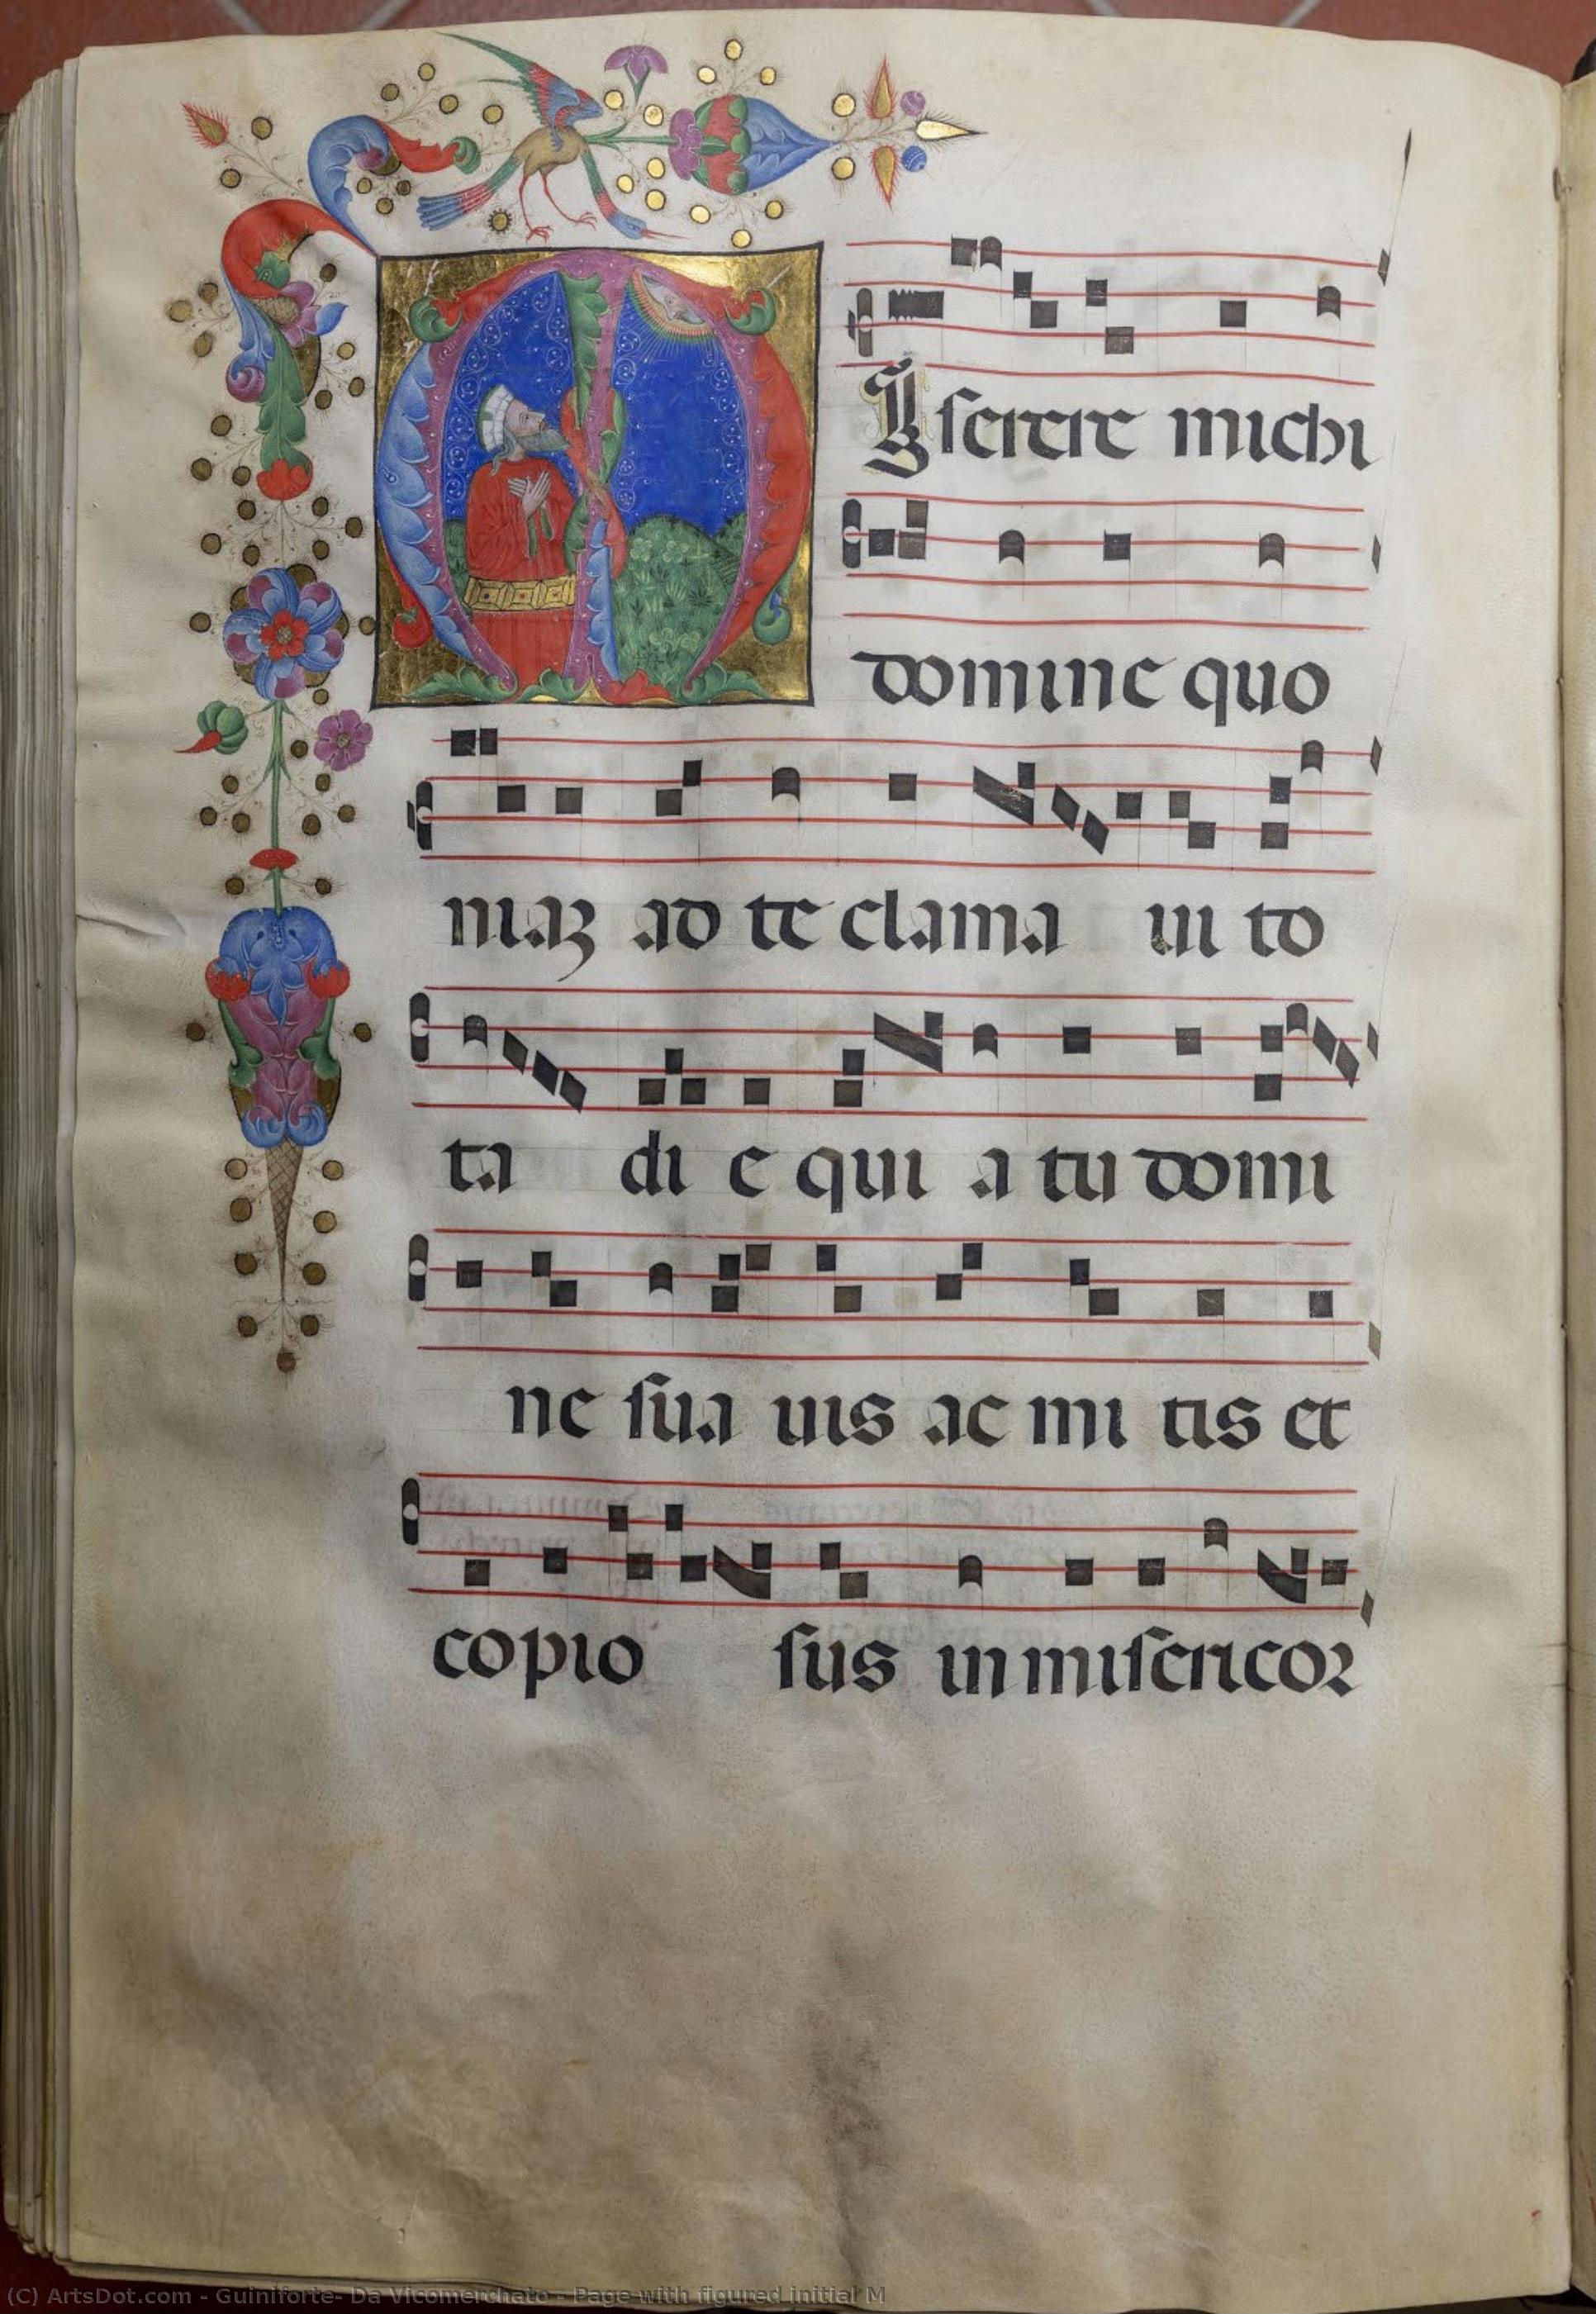 M Iserere michi
domine quo
niaz ad te clama ui to
ta di e qui a tu domi
ne sua uis ac mi tis et
copio sus in misericor
(C) ArtsDot.com - Guiniforte- Da Vicomerchato - Page with figured initial M